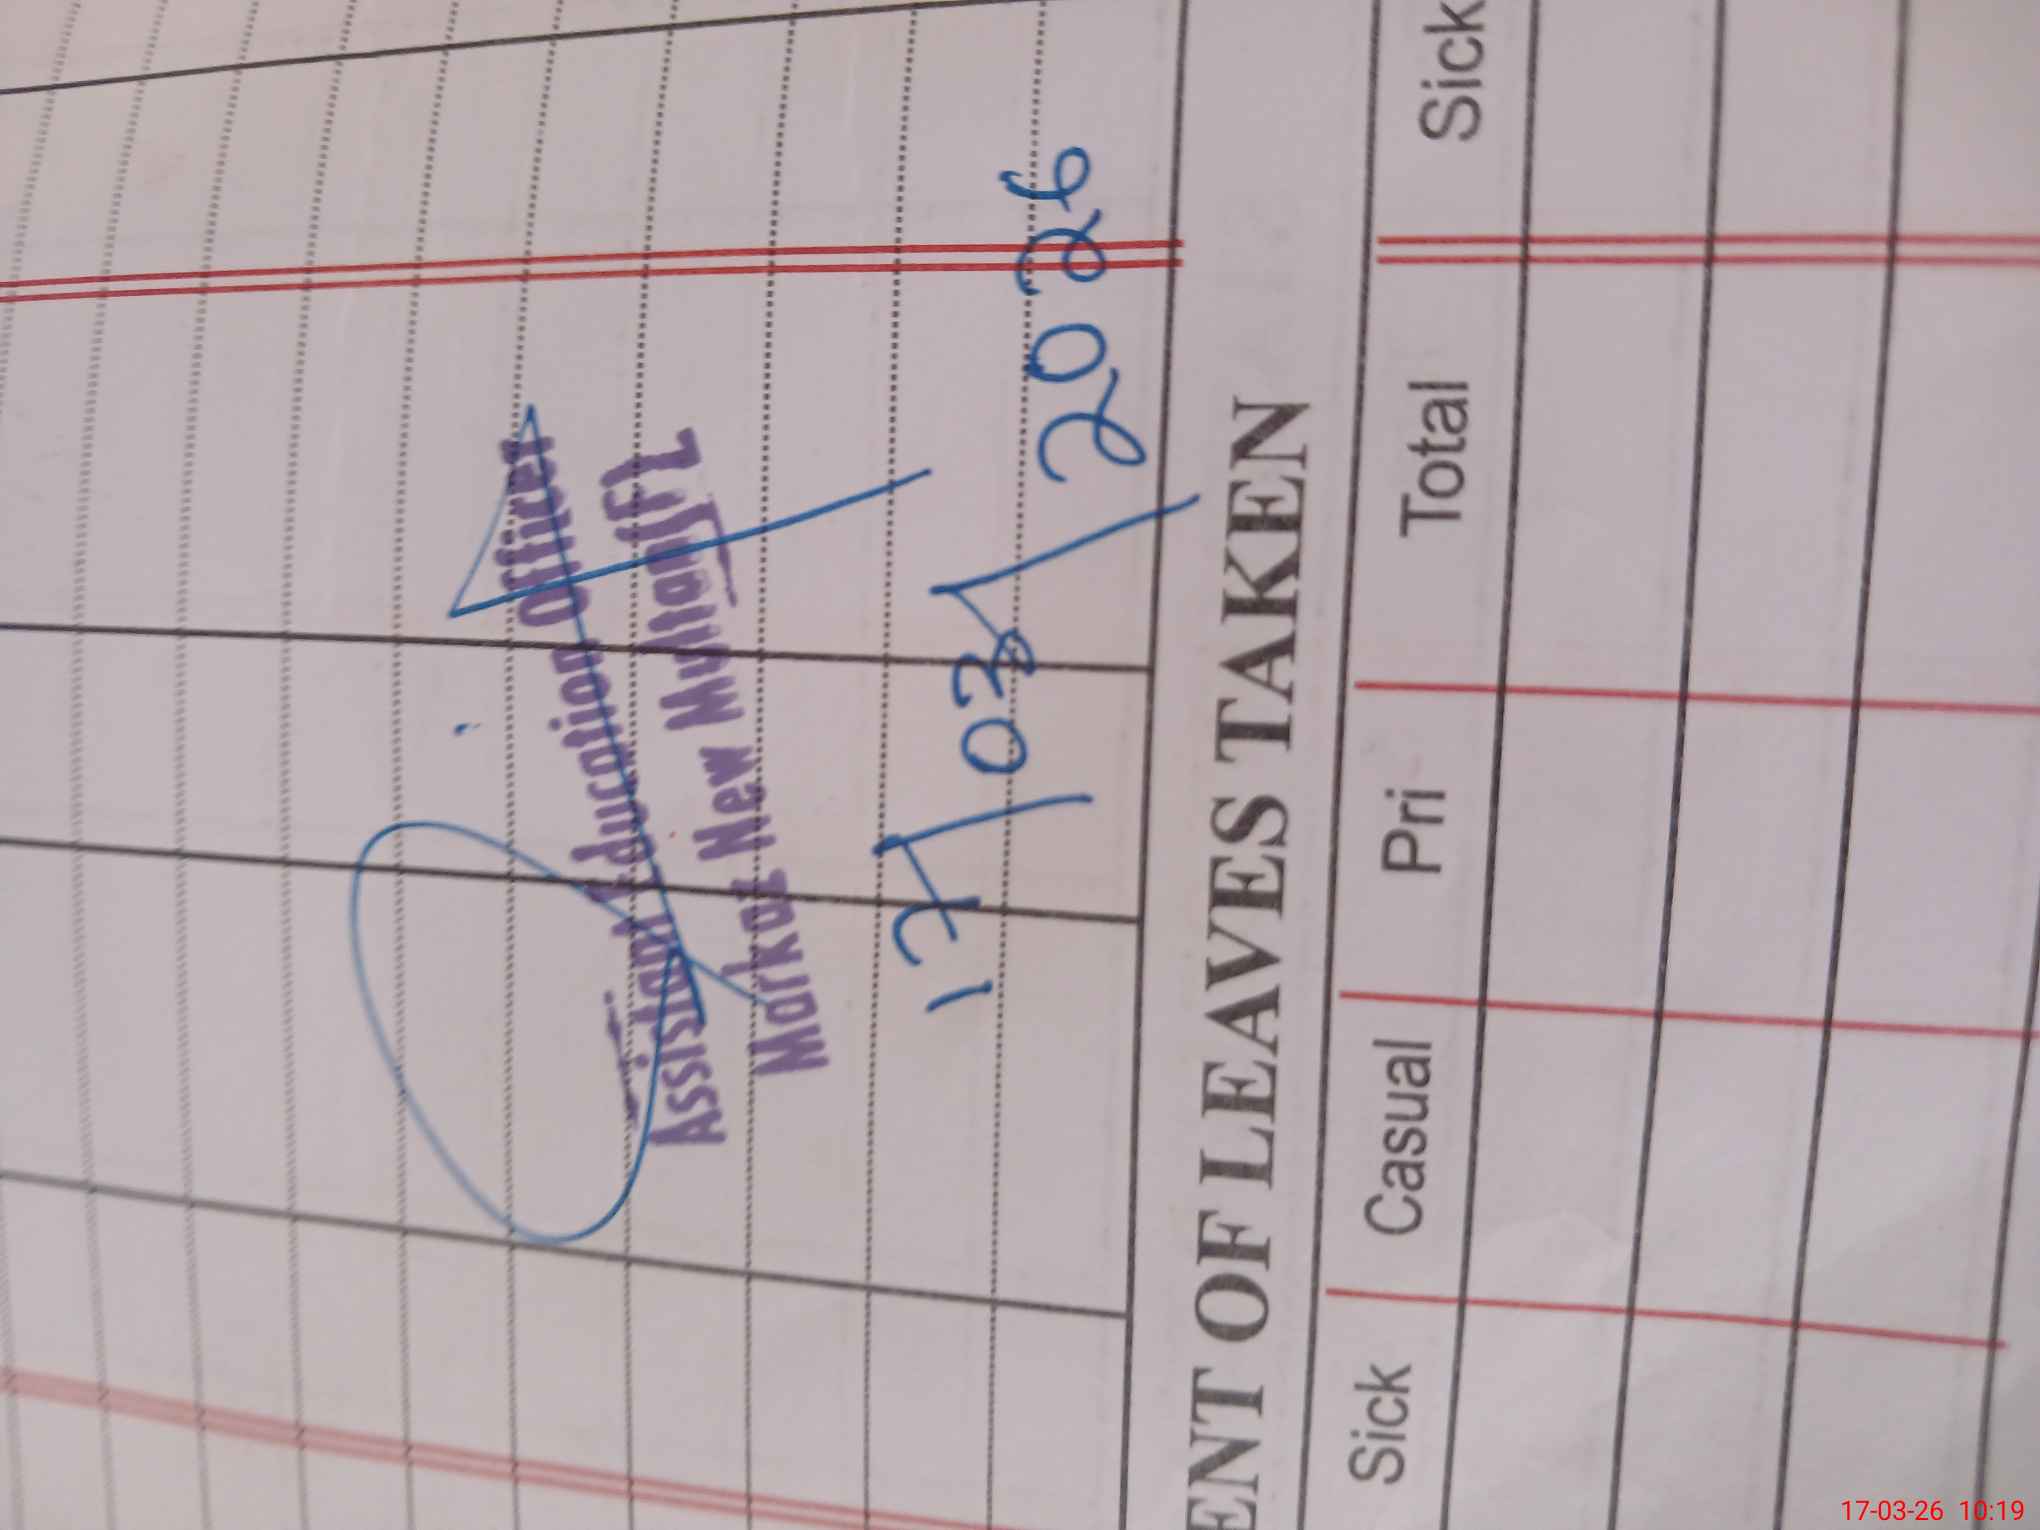 Assistant Education Officer
Markaz New Multan(F)
17/03/2026
ENT OF LEAVES TAKEN
Sick Casual Pri Total Sick
17-03-26 10:19